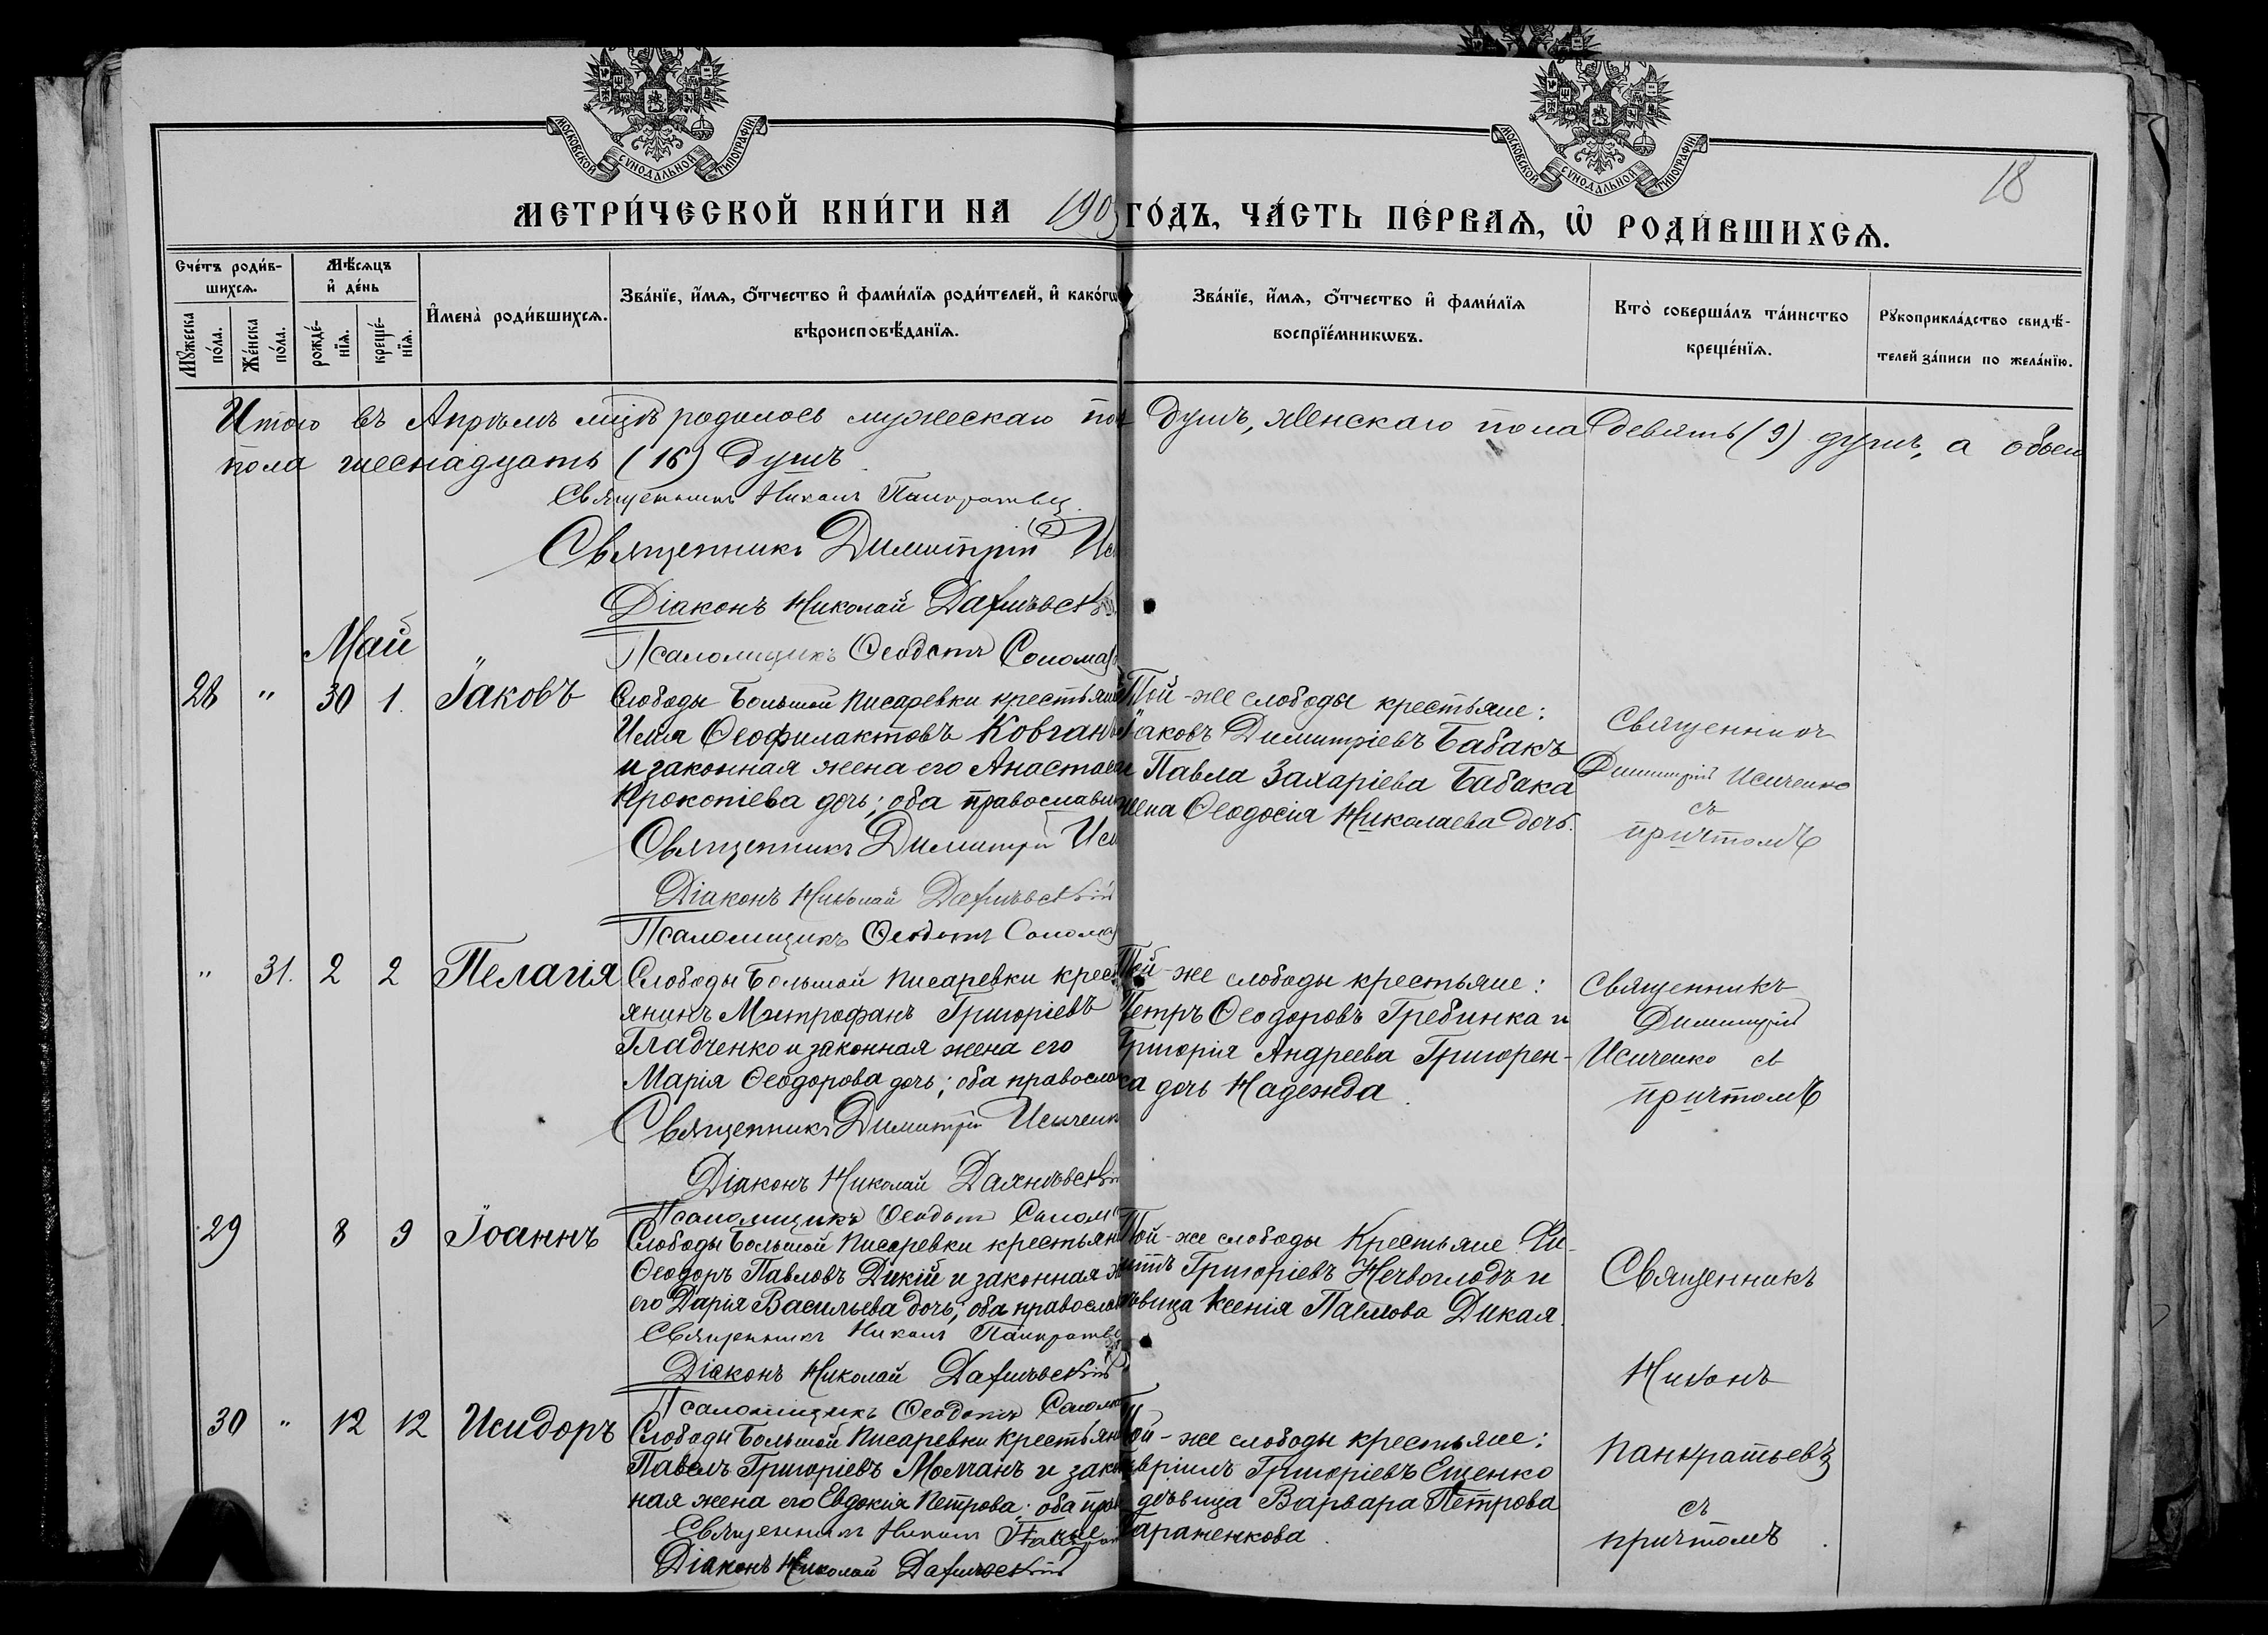 МОСКОВСКОЙ СѴНОДАЛЬНОЙ ТИПОГРАФІИ.
МОСКОВСКОЙ СѴНОДАЛЬНОЙ ТИПОГРАФІИ.
18
МЕТРИ́ЧЕСКОЙ КНИ́ГИ НА 190
ГО́ДЪ, ЧА́СТЬ ПЕ́РВАѦ, Ѡ҆ РОДИ́ВШИХСѦ.
Сче́тъ роди́в-
шихсѧ.
Мѣ́сѧцъ
и҆ де́нь
Мꙋ́жеска
по́ла.
Же́нска
по́ла.
рожде́-
нїѧ.
креще́-
нїѧ.
И҆мена̀ роди́вшихсѧ.
Зва́нїе, и҆́мѧ, ѻ҆́тчество и҆ фами́лїѧ роди́телей, и҆ како́гѡ
вѣроисповѣ́данїѧ.
Зва́нїе, и҆́мѧ, ѻ҆́тчество и҆ фами́лїѧ
воспрїе́мникѡвъ.
Кто̀ соверша́лъ та́инство
креще́нїѧ.
Рꙋкоприкла́дство свидѣ́-
телей за́писи по жела́нїю.
Итого въ Апрѣлѣ мцѣ родилось мужескаго по
душъ, женскаго пола девять (9) душъ, а обоего
пола шеснадцать (16) душъ.
Священникъ Никонъ Панкратьевъ
Священникъ Димитрій Ис
Діаконъ Николай
Псаломщикъ Ѳеодотъ Солома
Май
28 " 30 1. Іаковъ
Слободы Большой Писаревки крестьяни
Илія Ѳеофилактовъ Ковган
и законная жена его Анастасі
Прокопіева дочь; оба православн
Священникъ Димитрій Иси
Діаконъ Николай
Псаломщикъ Ѳеодотъ Солома
Той-же слободы крестьяне:
Іаковъ Димитріевъ Бабакъ
и Павла Захаріева Бабака
жена Ѳеодосія Николаева дочь.
Священникъ
Димитрій Исиченко
съ
причтомъ
" 31. 2 2 Пелагія
Слободы Большой Писаревки крест
янинъ Митрофанъ Григоріевъ
Гладченко и законная жена его
Марія Ѳеодорова дочь; оба правосла
Священникъ Димитрій Исиченк
Діаконъ Николай
Псаломщикъ Ѳеодотъ Солом
Той-же слободы крестьяне:
Петръ Ѳеодоровъ Гребинка и
Григорія Андреева Григорен-
ка дочь Надежда.
Священникъ
Димитрій
Исиченко съ
причтомъ
29 8 9 Іоаннъ
Слободы Большой Писаревки крестьян
Ѳеодоръ Павловъ Дикій и законная ж
его Дарія Васильева дочь; оба правосла
Священникъ Никонъ Панкратьев
Діаконъ Николай
Псаломщикъ Ѳеодотъ Солом
Той-же слободы Крестьяне
Григоріевъ и
дѣвица Ксенія Павлова Дикая.
Священникъ
Никонъ
Панкратьевъ
съ
причтомъ.
30 " 12 12 Исидоръ
Слободы Большой Писаревки крестьян
Павелъ Григоріевъ Молчанъ и закон
ная жена его Евдокія Петрова; оба прав
Священникъ Никонъ
Діаконъ Николай
Той-же слободы крестьяне:
Гавріилъ Григоріевъ Ещенко
дѣвица Варвара Петрова
Тараненкова.